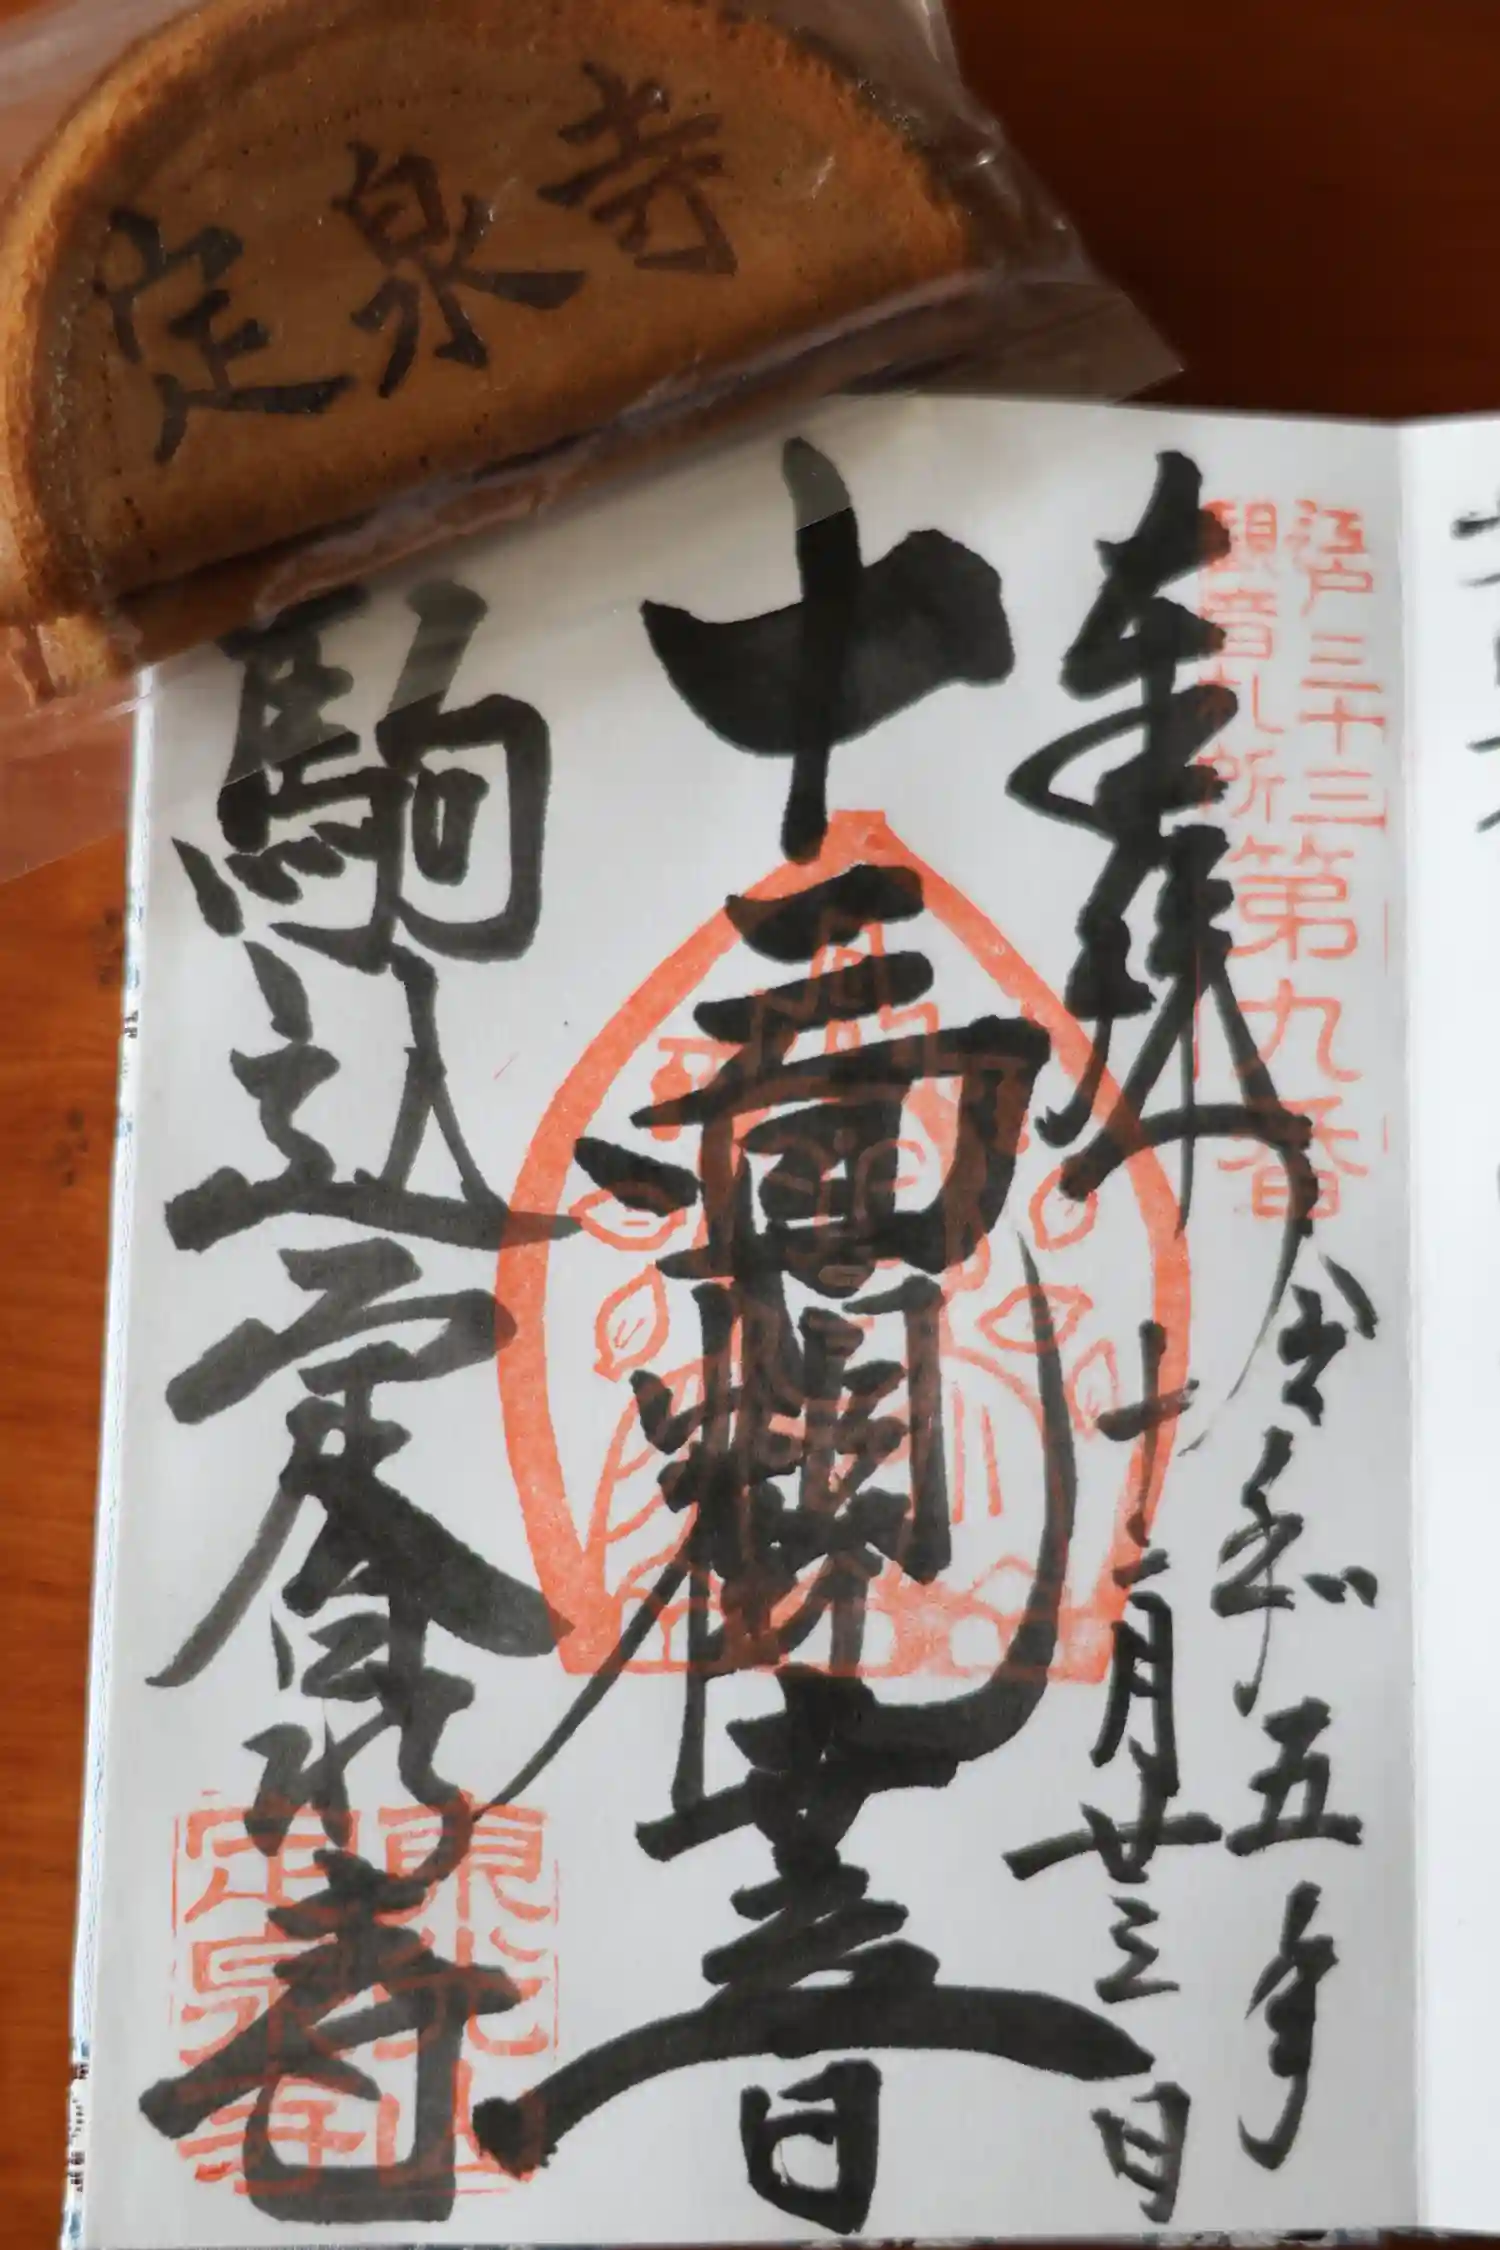 定泉寺
江戸三十三
観音札所
第九番
奉拝
令和五年
十二月廿三日
十一面観世音
駒込定泉寺
東光山
定泉寺